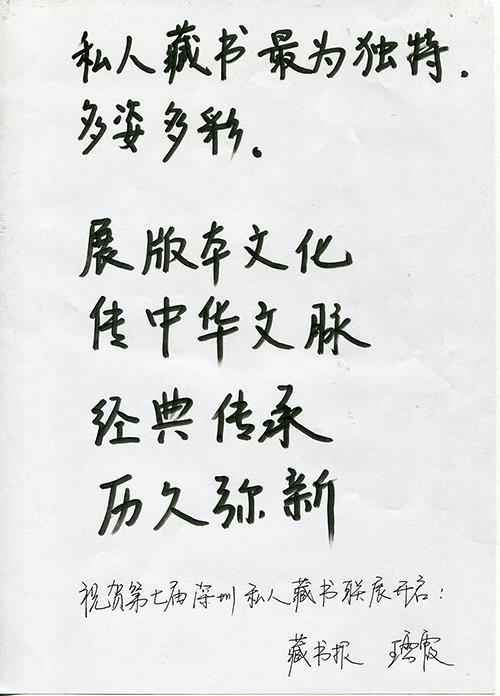 私人藏书最为独特.
多姿多彩。
展版本文化
传中华文脉
经典传承
历久弥新
祝贺第七届深圳私人藏书联展开启!
藏书报 王雪霞